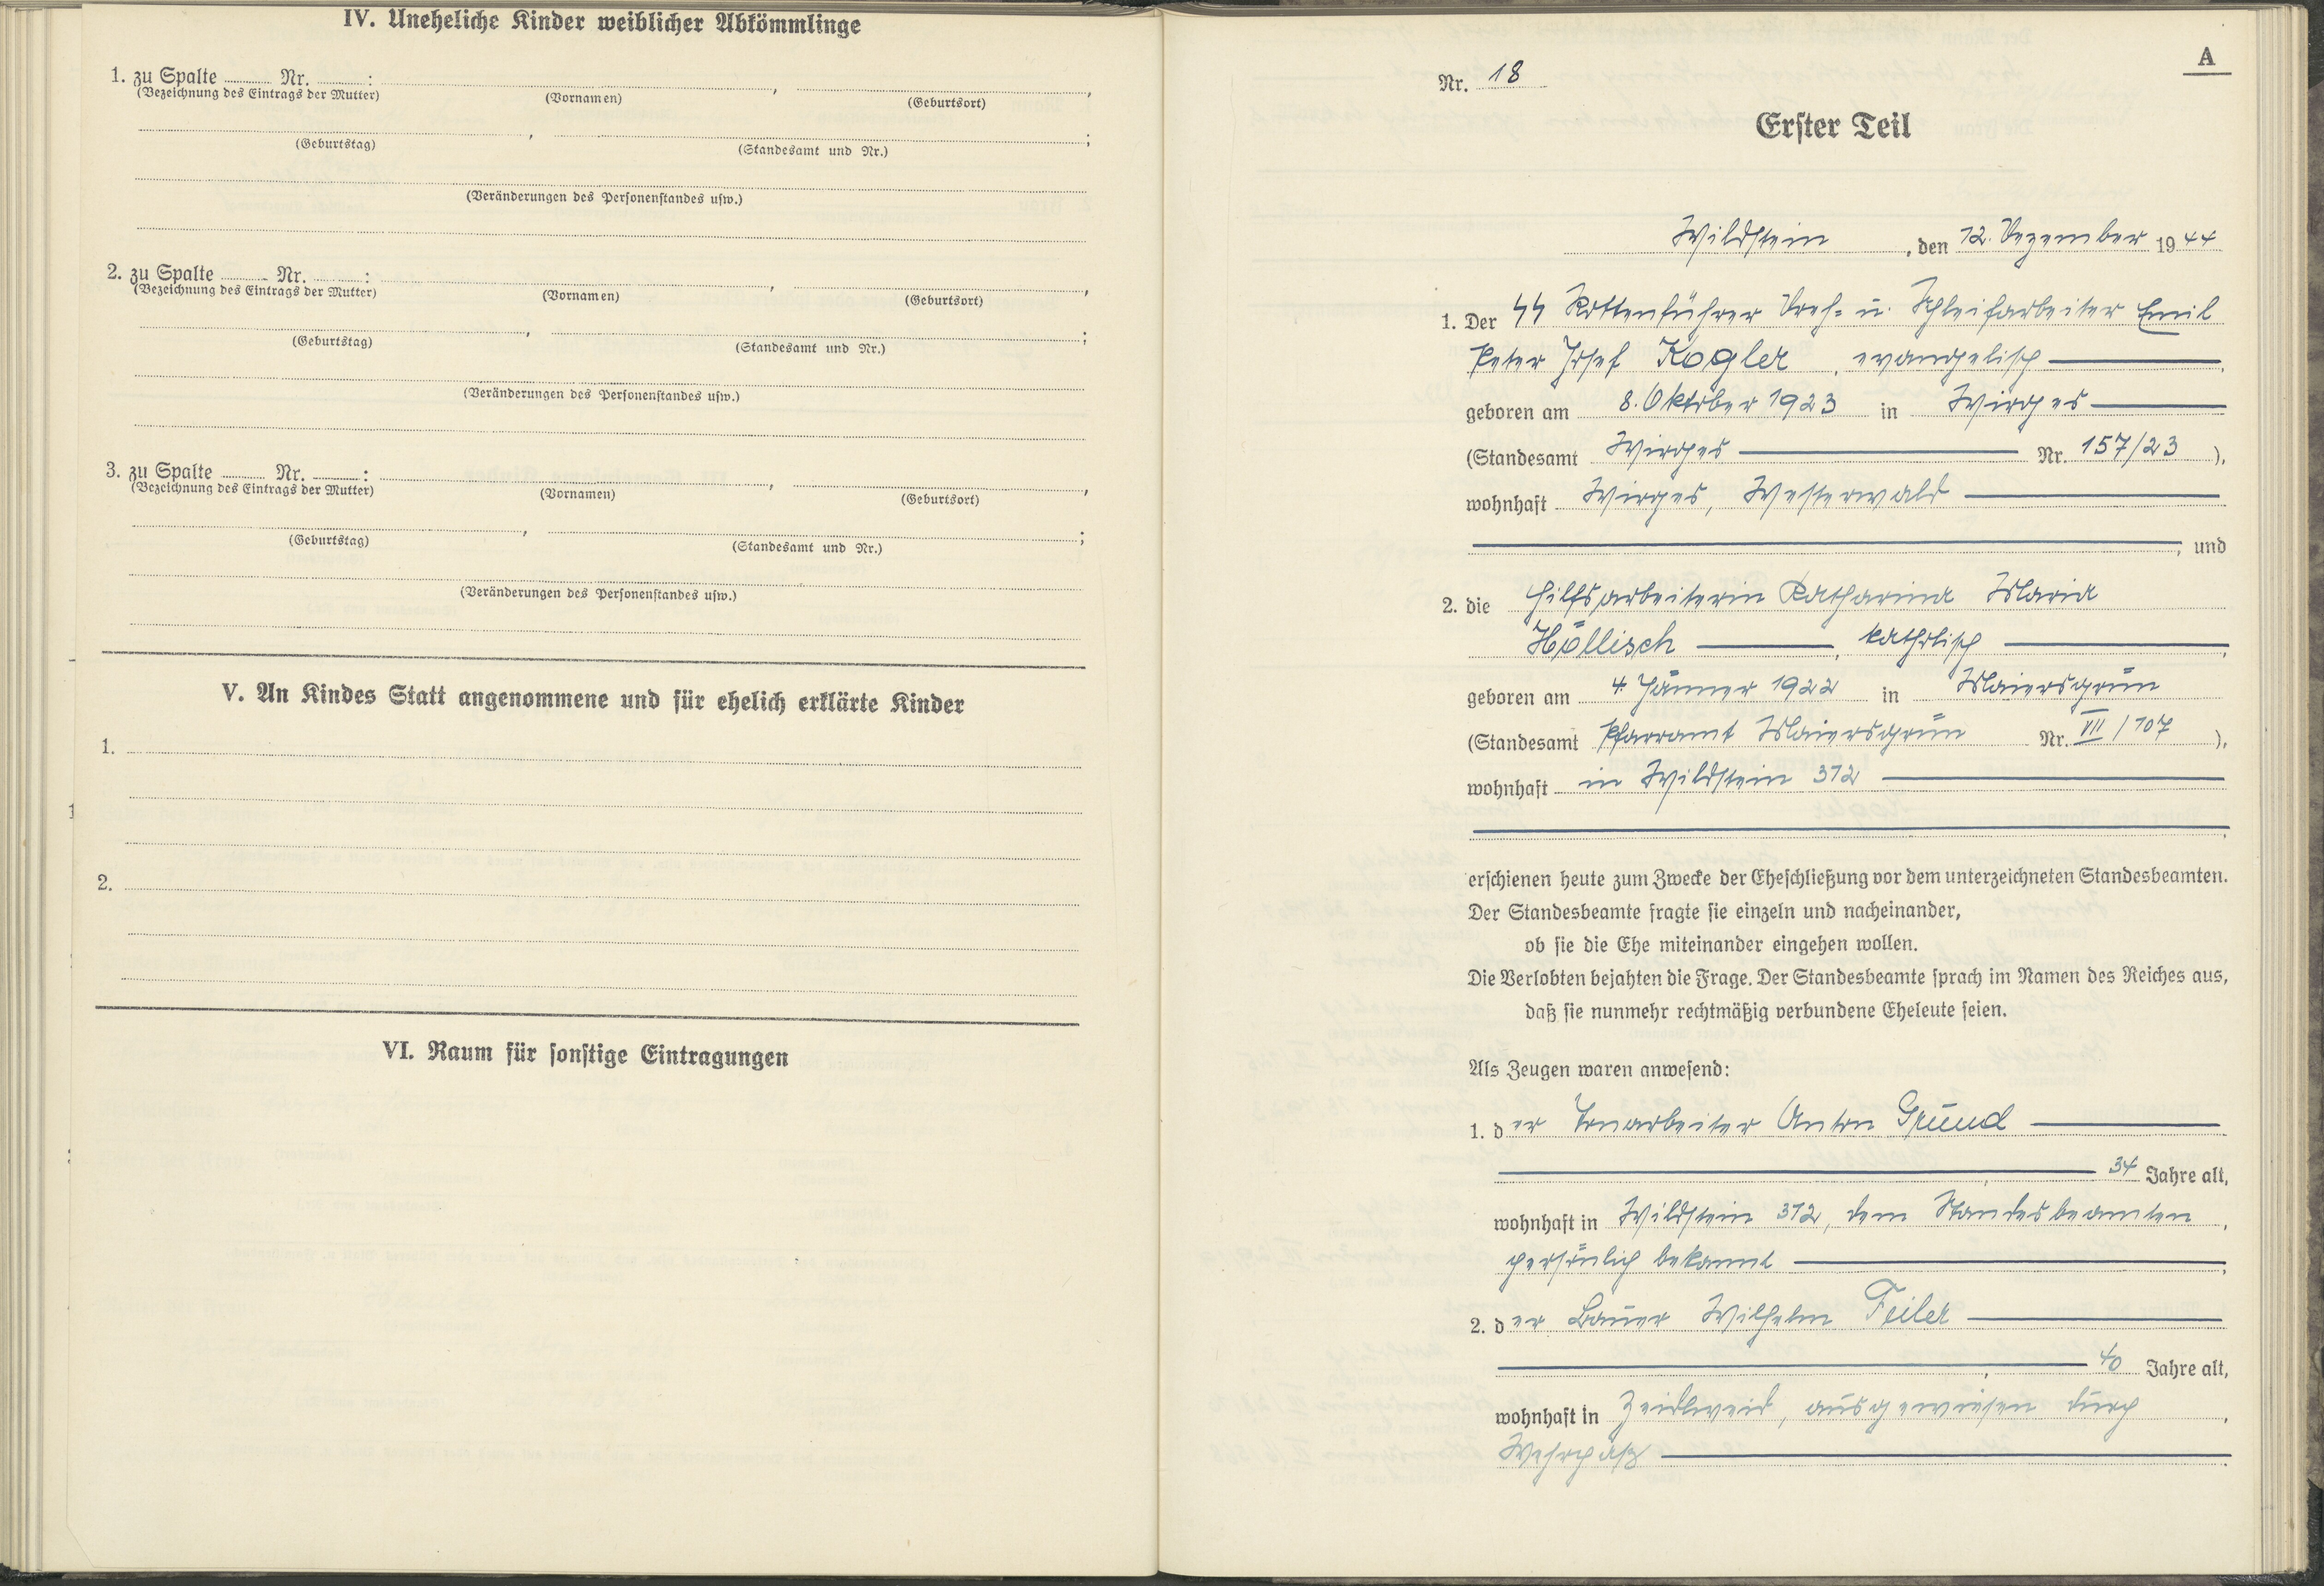 IV. Uneheliche Kinder weiblicher Abkömmlinge
1. zu Spalte ........ Nr. ........ :
(Bezeichnung des Eintrags der Mutter) (Vornamen) (Geburtsort)
(Geburtstag) (Standesamt und Nr.)
(Veränderungen des Personenstandes usw.)
2. zu Spalte ........ Nr. ........ :
(Bezeichnung des Eintrags der Mutter) (Vornamen) (Geburtsort)
(Geburtstag) (Standesamt und Nr.)
(Veränderungen des Personenstandes usw.)
3. zu Spalte ........ Nr. ........ :
(Bezeichnung des Eintrags der Mutter) (Vornamen) (Geburtsort)
(Geburtstag) (Standesamt und Nr.)
(Veränderungen des Personenstandes usw.)
V. An Kindes Statt angenommene und für ehelich erklärte Kinder
1.
2.
VI. Raum für sonstige Eintragungen
A
Nr. 18
Erster Teil
Wildstein, den 12. Dezember 1944
1. Der SS Rottenführer Dreh= u. Schleifarbeiter Emil
Peter Josef Kogler, evangelisch
geboren am 8. Oktober 1923 in Wirges
(Standesamt Wirges Nr. 157/23),
wohnhaft Wirges, Westerwald
, und
2. die Hilfsarbeiterin Katharina Maria
Höllisch, katholisch
geboren am 4. Jänner 1922 in Maiersgrün
(Standesamt Pfarramt Maiersgrün Nr. VII/107),
wohnhaft in Wildstein 312
erschienen heute zum Zwecke der Eheschließung vor dem unterzeichneten Standesbeamten.
Der Standesbeamte fragte sie einzeln und nacheinander,
ob sie die Ehe miteinander eingehen wollen.
Die Verlobten bejahten die Frage. Der Standesbeamte sprach im Namen des Reiches aus,
daß sie nunmehr rechtmäßig verbundene Eheleute seien.
Als Zeugen waren anwesend:
1. der Tonarbeiter Anton Grund
34 Jahre alt,
wohnhaft in Wildstein 312, dem Standesbeamten,
persönlich bekannt
2. der Bauer Wilhelm Feiler
40 Jahre alt,
wohnhaft in Zeidlweid, ausgewiesen durch,
Wehrpaß